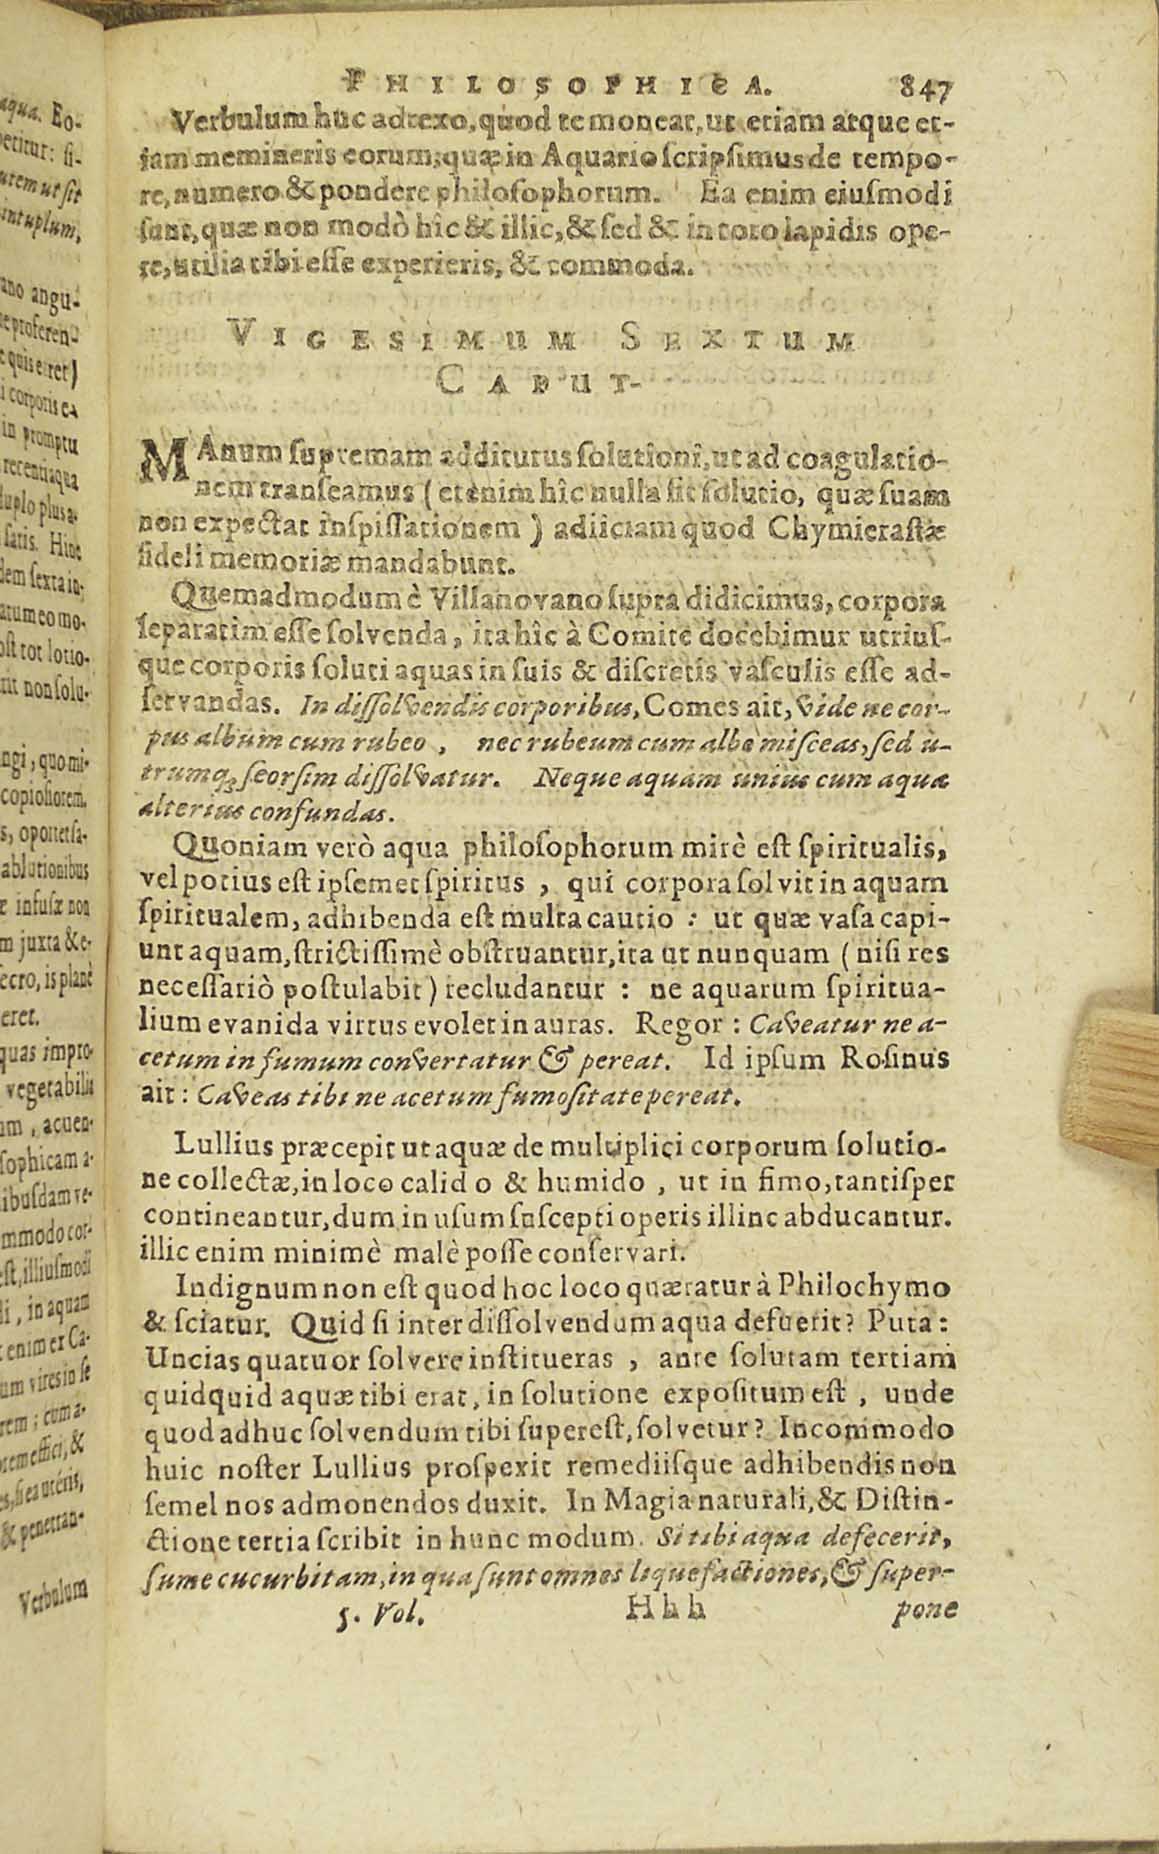 aqua. Eo-
petitur: si-
utem ut sit
intuplum,
ano angu-
e proferen-
quiseret)
i corporis e-
in promptu
recenti aqua
duplo plus a-
satis. Hinc
dem sexta in-
atum eo mo-
ost tot lotio-
rit non solu-
ngi, quo mi-
copiosiorem.
s, oportet sa-
ablutionibus
infusæ non
m juxta & e-
ecro, is planè
eret.
quas impro-
vegetabilia
um, acuen-
sophicam a-
ibusdam ve-
mmodo cor-
est, illiusmodi
li, in aquam
enim ex Ca-
um vires in se
rem; cum a-
tem effici, &
es, si ea uteris,
& penetran-
Verbulum
PHILOSOPHICA. 847
Verbulum huc adtexo, quod te moneat, ut etiam atque et-
iam memineris eorum, quæ in Aquario scripsimus de tempo-
re, numero & pondere philosophorum. Ea enim eiusmodi
sunt, quæ non modò hîc & illic, & sed & in toto lapidis ope-
re, utilia tibi esse experieris, & commoda.
VIGESIMUM SEXTUM
CAPUT.
MAnum supremam additurus solutioni, ut ad coagulatio-
nem transeamus (etenim hîc nulla sit solutio, quæ suam
non expectat inspissationem) adiiciam quod Chymierastæ
fideli memoriæ mandabunt.
Quemadmodum è Villanovano supra didicimus, corpora
separatim esse solvenda, ita hîc à Comite docebimur utrius-
que corporis soluti aquas in suis & discretis vasculis esse ad-
servandas. In dissolvendis corporibus, Comes ait, vide ne cor-
pus album cum rubeo, nec rubeum cum albo misceas, sed u-
trumq; seorsim dissolvatur. Neque aquam unius cum aqua
alterius confundas.
Quoniam verò aqua philosophorum mirè est spiritualis,
vel potius est ipsemet spiritus, qui corpora solvit in aquam
spiritualem, adhibenda est multa cautio: ut quæ vasa capi-
unt aquam, strictissimè obstruantur, ita ut nunquam (nisi res
necessariò postulabit) recludantur: ne aquarum spiritua-
lium evanida virtus evolet in auras. Regor: Caveatur ne a-
cetum in fumum convertatur & pereat. Id ipsum Rosinus
ait: Caveas tibi ne acetum fumositate pereat.
Lullius præcepit ut aquæ de multiplici corporum solutio-
ne collectæ, in loco calido & humido, ut in fimo, tantisper
contineantur, dum in usum suscepti operis illinc abducantur.
illic enim minimè malè posse conservari.
Indignum non est quod hoc loco quæratur à Philochymo
& sciatur. Quid si inter dissolvendum aqua defuerit? Puta:
Uncias quatuor solvere institueras, ante solutam tertiam
quidquid aquæ tibi erat, in solutione expositum est, unde
quod adhuc solvendum tibi superest, solvetur? Incommodo
huic noster Lullius prospexit remediisque adhibendis non
semel nos admonendos duxit. In Magia naturali, & Distin-
ctione tertia scribit in hunc modum. Si tibi aqua defecerit,
sume cucurbitam, in qua sunt omnes liquefactiones, & super-
5. Vol. Hhh pone